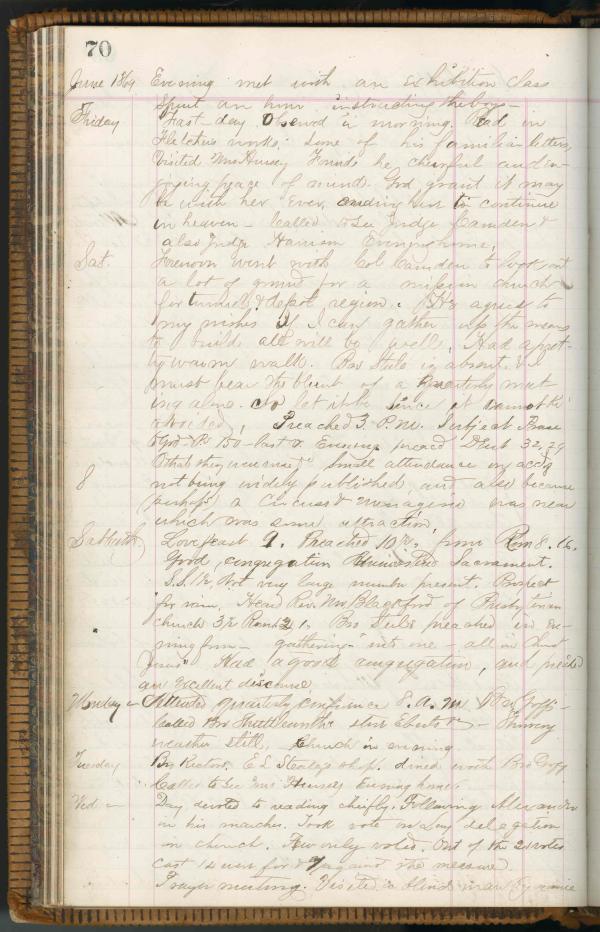 70
June 1869 Evening met with an exhibition class
spent an hour instructing the boys -
Friday Fast day observd in morning. Read in
Fletchers works, some of his familiar letters,
Visited Mrs Hursey Found he cheerful and in-
joying peace of mind. God grant it may
be with her Ever, and to continue
in heaven - Called to See Judge Camden &
also Judge Harrison Evening home,
Sat. Forenoon went with Col Camden to look out
a lot of ground for a mission church
for tunnell & depot region. He agrees to
my wishes If I can gather up the means
to build all will be well, Had a pret-
ty warm walk. Bro Steele is absent &
must bear the blunt of a Quarterly meet
ing alone. So let it be Since it cannot be
avoided, Preached 3 P.M. Subject Praise
God Ps 150 - last v. Evening preacd Deut 32,29
O that they were wise &c Small attendance on acc'd
8 not being widely published and also because
perhaps a Circus & Menagerie was near
which was some attraction
Sabbath Lovefeast 9. Preached 10½, from Rom 8.16.
Good congregation Administered Sacrament.
S.S. 2, Not very large number present. Prospect
for rain, Heard Rev. Mr Blackford of Presbyterian
church 3½ Rom 2 1. Bro Steele preached in Ev-
ning from - "gathering into one - all in Christ
Jesus" Had a good congregation, and preachd
an Excellent discourse
Monday - Attended quarterly conference 8. A. M
Called Bro
weather still, Church in evening.
Tuesday Bro Rector, E L shop. dined with Bro Goff
Called to See Mrs Hursey Evening home.
Wed - Day devoted to reading chiefly. Following Alexander
in his marches. Took vote on Lay delegation
in church. Few only voted. Out of the 21 votes
cast 12 were for & 9 against the measure
Prayer meeting. Visited a blind man